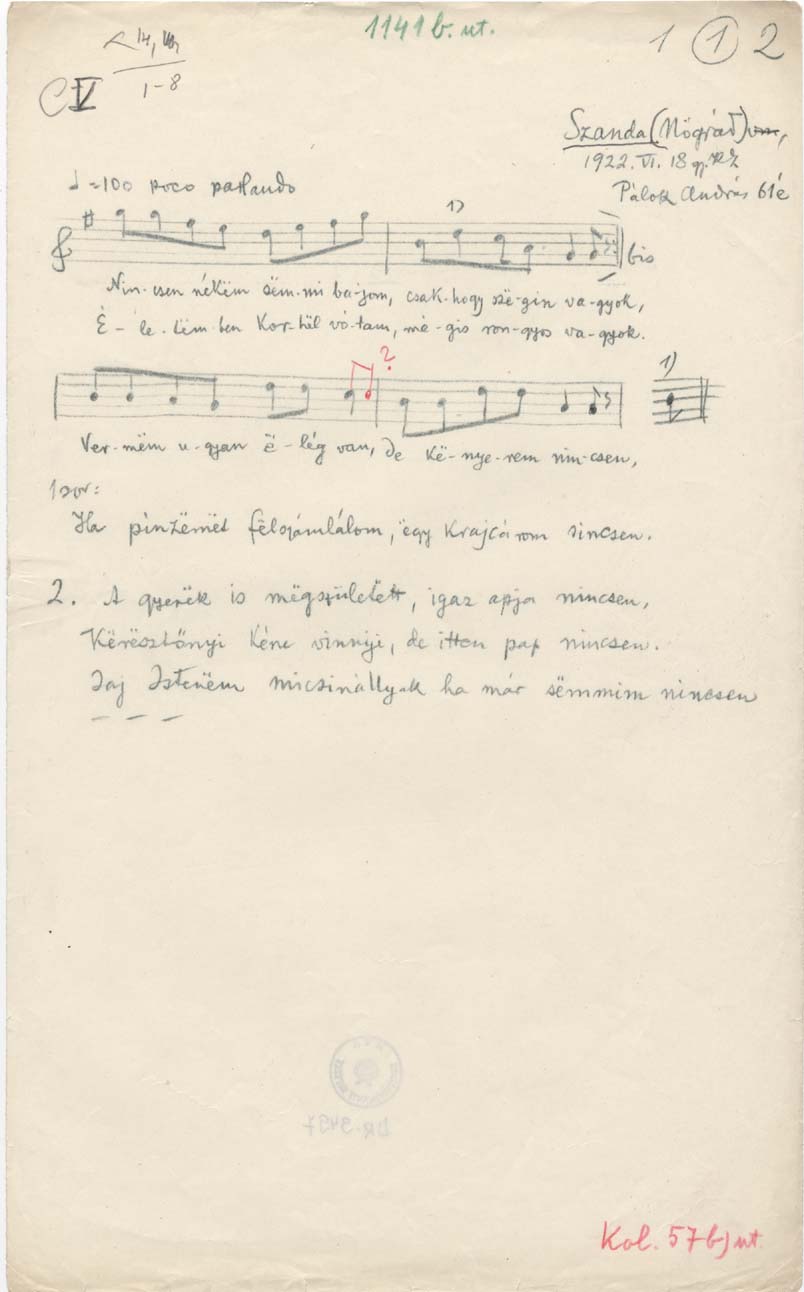 1141 b. ut.
1 1 2
14,
1-8
C V
Szanda (Nógrád)
1922. VI. 18 gy. KZ
Pálok András 61 é
♩ = 100 poco parlando
1)
bis
Nin-csen nékëm sëm-mi ba-jom, csak-hogy szë-gin va-gyok,
É-le-tëm-ben Kor-hël vó-tam, mé-gis ron-gyos va-gyok.
?
1)
Ver-mëm u-gyan ë-lég van, de kë-nye-rem nin-csen,
Ha pínzëmët fëlszámlálom, ëgy krajcárom sincsen.
2. A gyerëk is mëgszületëtt, igaz apja nincsen,
Kërësztőnyi kéne vinnyi, de itten pap nincsen.
Jaj Istenëm micsinállyak ha már sëmmim nincsen
Kol. 57 b) ut.